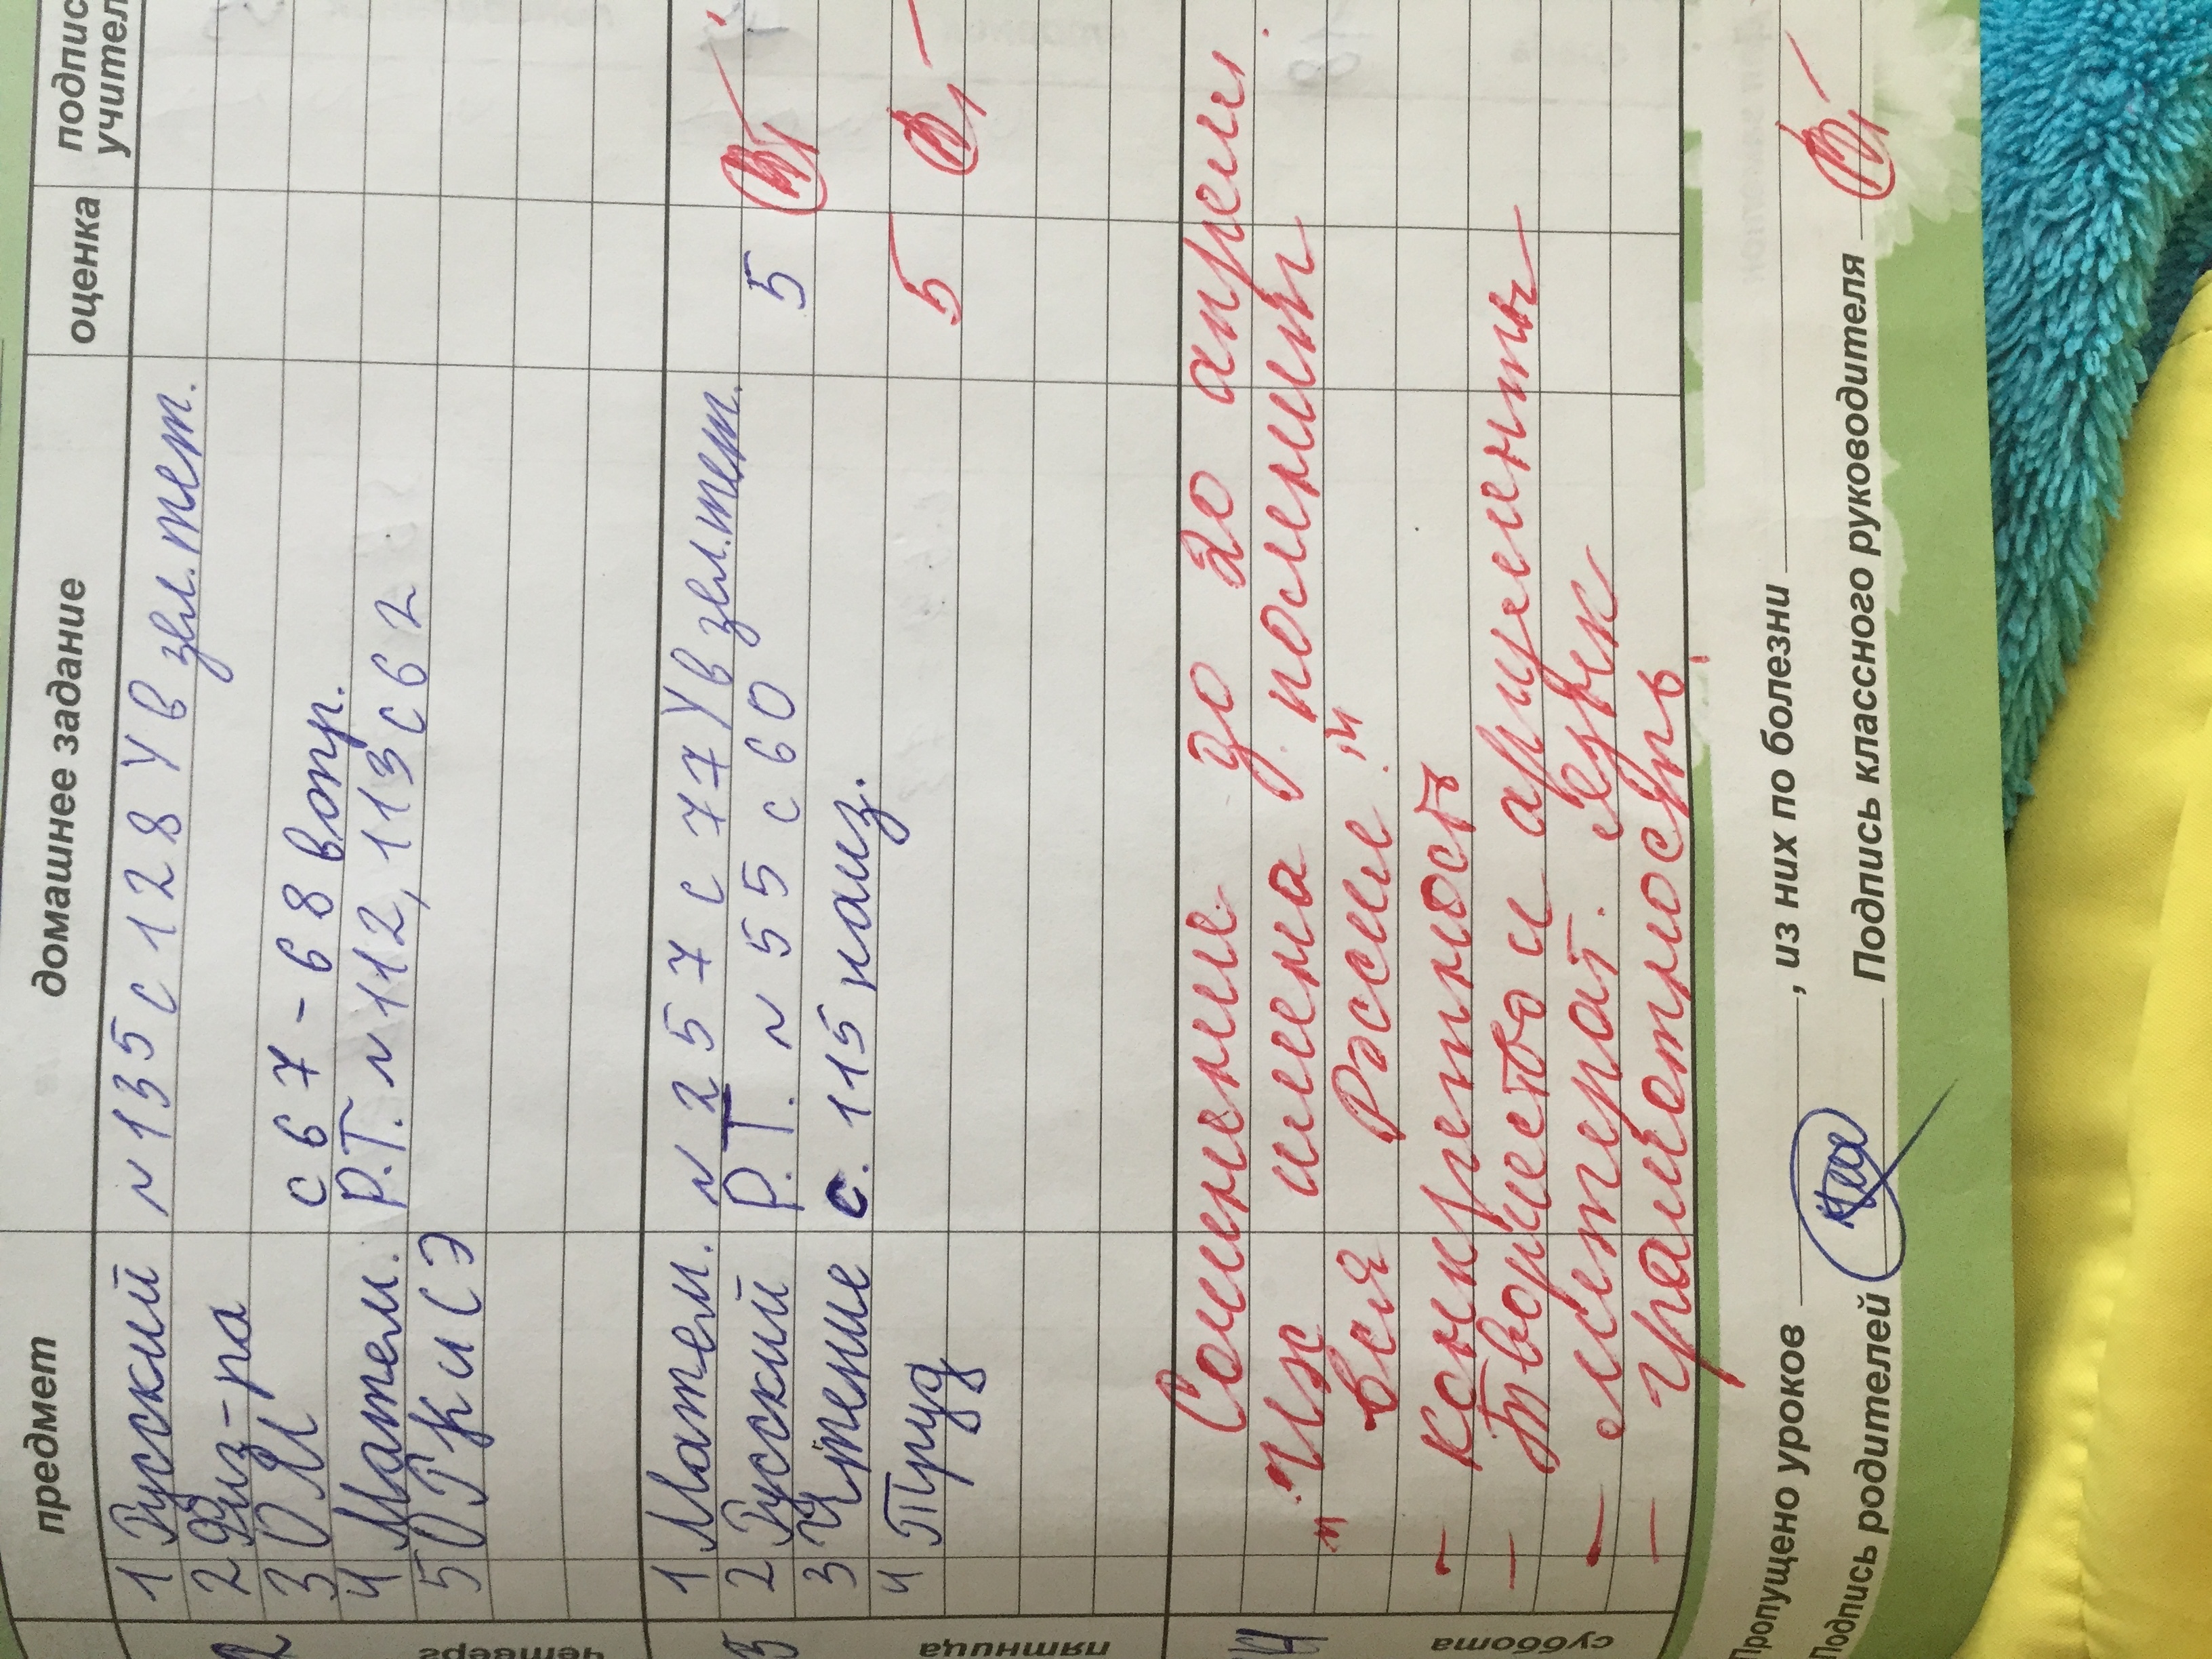 предмет домашнее задание оценка подпись учителя
четверг
1 Русский н 135 с 128 У в зел.тет.
2 Физ-ра
3 ОМ с 67-68 вопр.
4 Матем. Р.Т. н 112, 113 с 62
5 ОРКиСЭ
3 пятница
1 Матем. н 257 с 77 У в зел.тет.
2 Русский Р.Т. н 55 с 60 5
3 Чтение с. 115 наиз.
4 Труд 5
суббота
Сочинение до 20 апреля.
"Их имена помнит
вся Россия."
- конкретность
- творчество и аргументы
- литерат. язык
- грамотность.
Пропущено уроков , из них по болезни
Подпись родителей Подпись классного руководителя